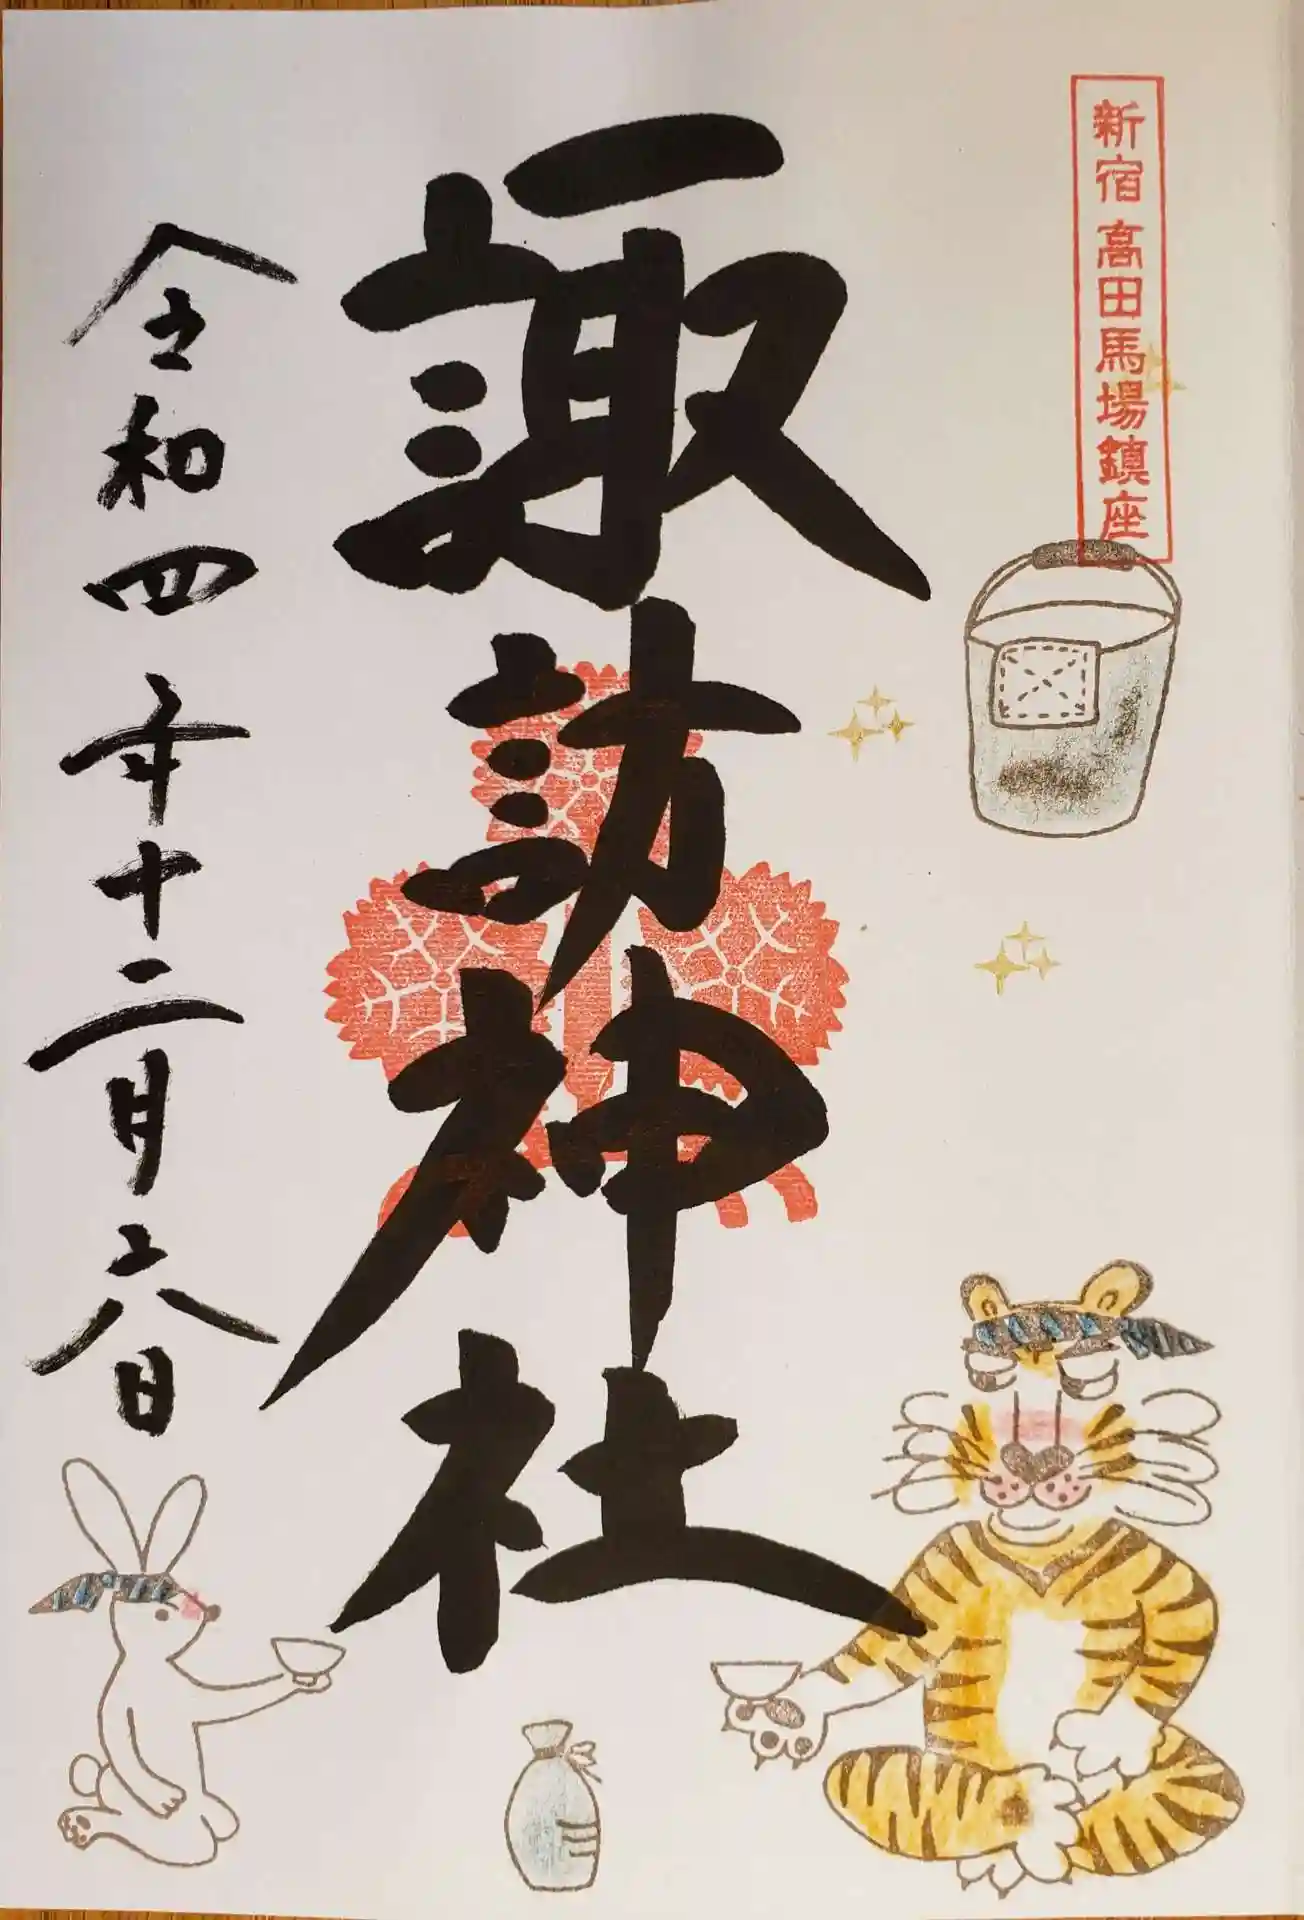 新宿 高田馬場鎮座
諏訪神社
令和四年十二月六日